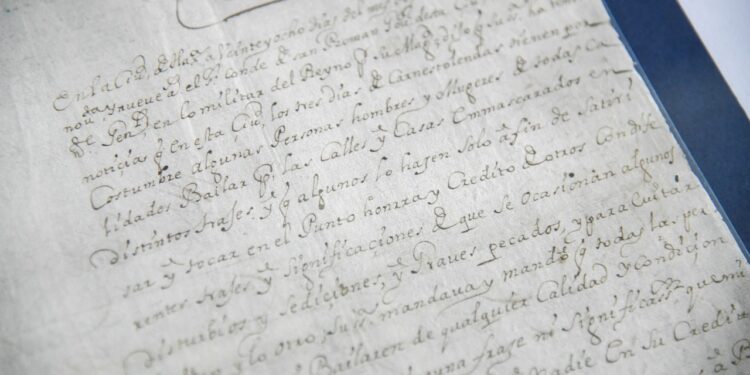 En la Ciu.d de Mal.a a Veinte y ocho dias del mes
nou.ta y nueve a.s el S.r Conde de san Roman
de Gen.l en lo militar del Reyno q su Mag.d
noticia q en esta Ciu.d los tres dias de Carnestolendas tienen por
Costumbre algunas Personas hombres y Mugeres de todas Ca
lidades Bailar p.r las Calles y Casas Emmascarados en
distintos trajes y q algunos lo hazen solo a fin de satiri
sar y tocar en el Punto honrra y Credito de otros con dife
rentes trajes y significaciones de que se ocasionan algunos
disturbios y sediciones, y Graves pecados, y para Evitar
lo Vno y lo otro, su ss.a mandava y mando q todas las per
Bailaren de qualquier Calidad y Condicion
frase ni significass.n que
Nadie En su Credito